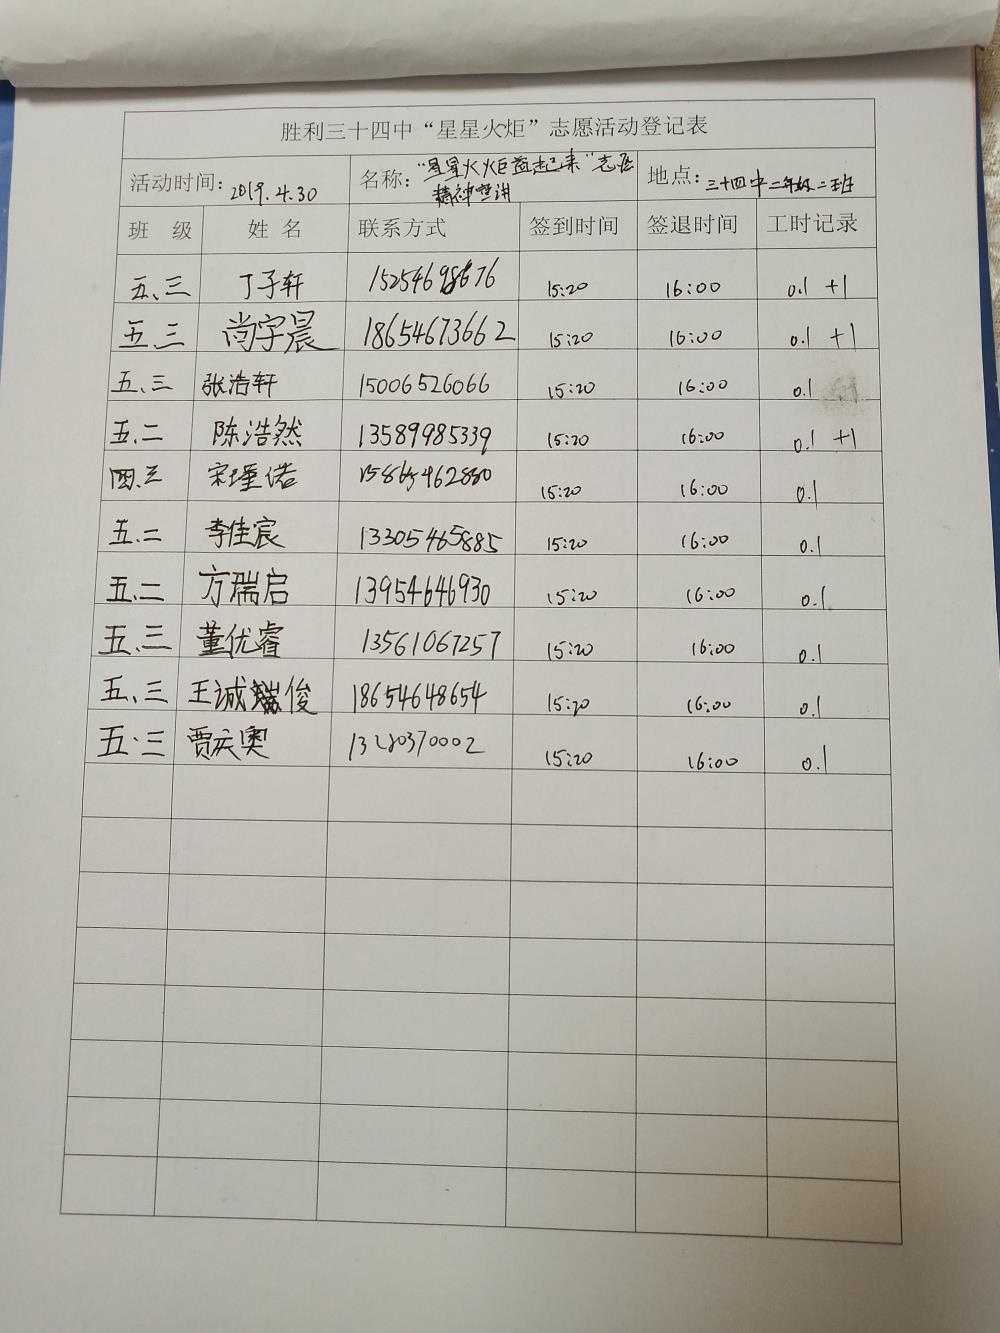 胜利三十四中“星星火炬”志愿活动登记表
活动时间: 2019.4.30 名称: “星星火炬益起来”志愿精神宣讲 地点: 三十四中二年级二班
班 级 姓 名 联系方式 签到时间 签退时间 工时记录
五、三 丁子轩 15:20 16:00 0.1 +1
五、三 尚宇晨 18654673662 15:20 16:00 0.1 +1
五、三 张浩轩 15006526066 15:20 16:00 0.1
五、二 陈浩然 13589985339 15:20 16:00 0.1 +1
四、三 宋瑾偌 15:20 16:00 0.1
五、二 李佳宸 13305465885 15:20 16:00 0.1
五、二 方瑞启 13954646930 15:20 16:00 0.1
五、三 董优睿 13561067257 15:20 16:00 0.1
五、三 王诚俊 18654648654 15:20 16:00 0.1
五、三 贾庆奥 15:20 16:00 0.1